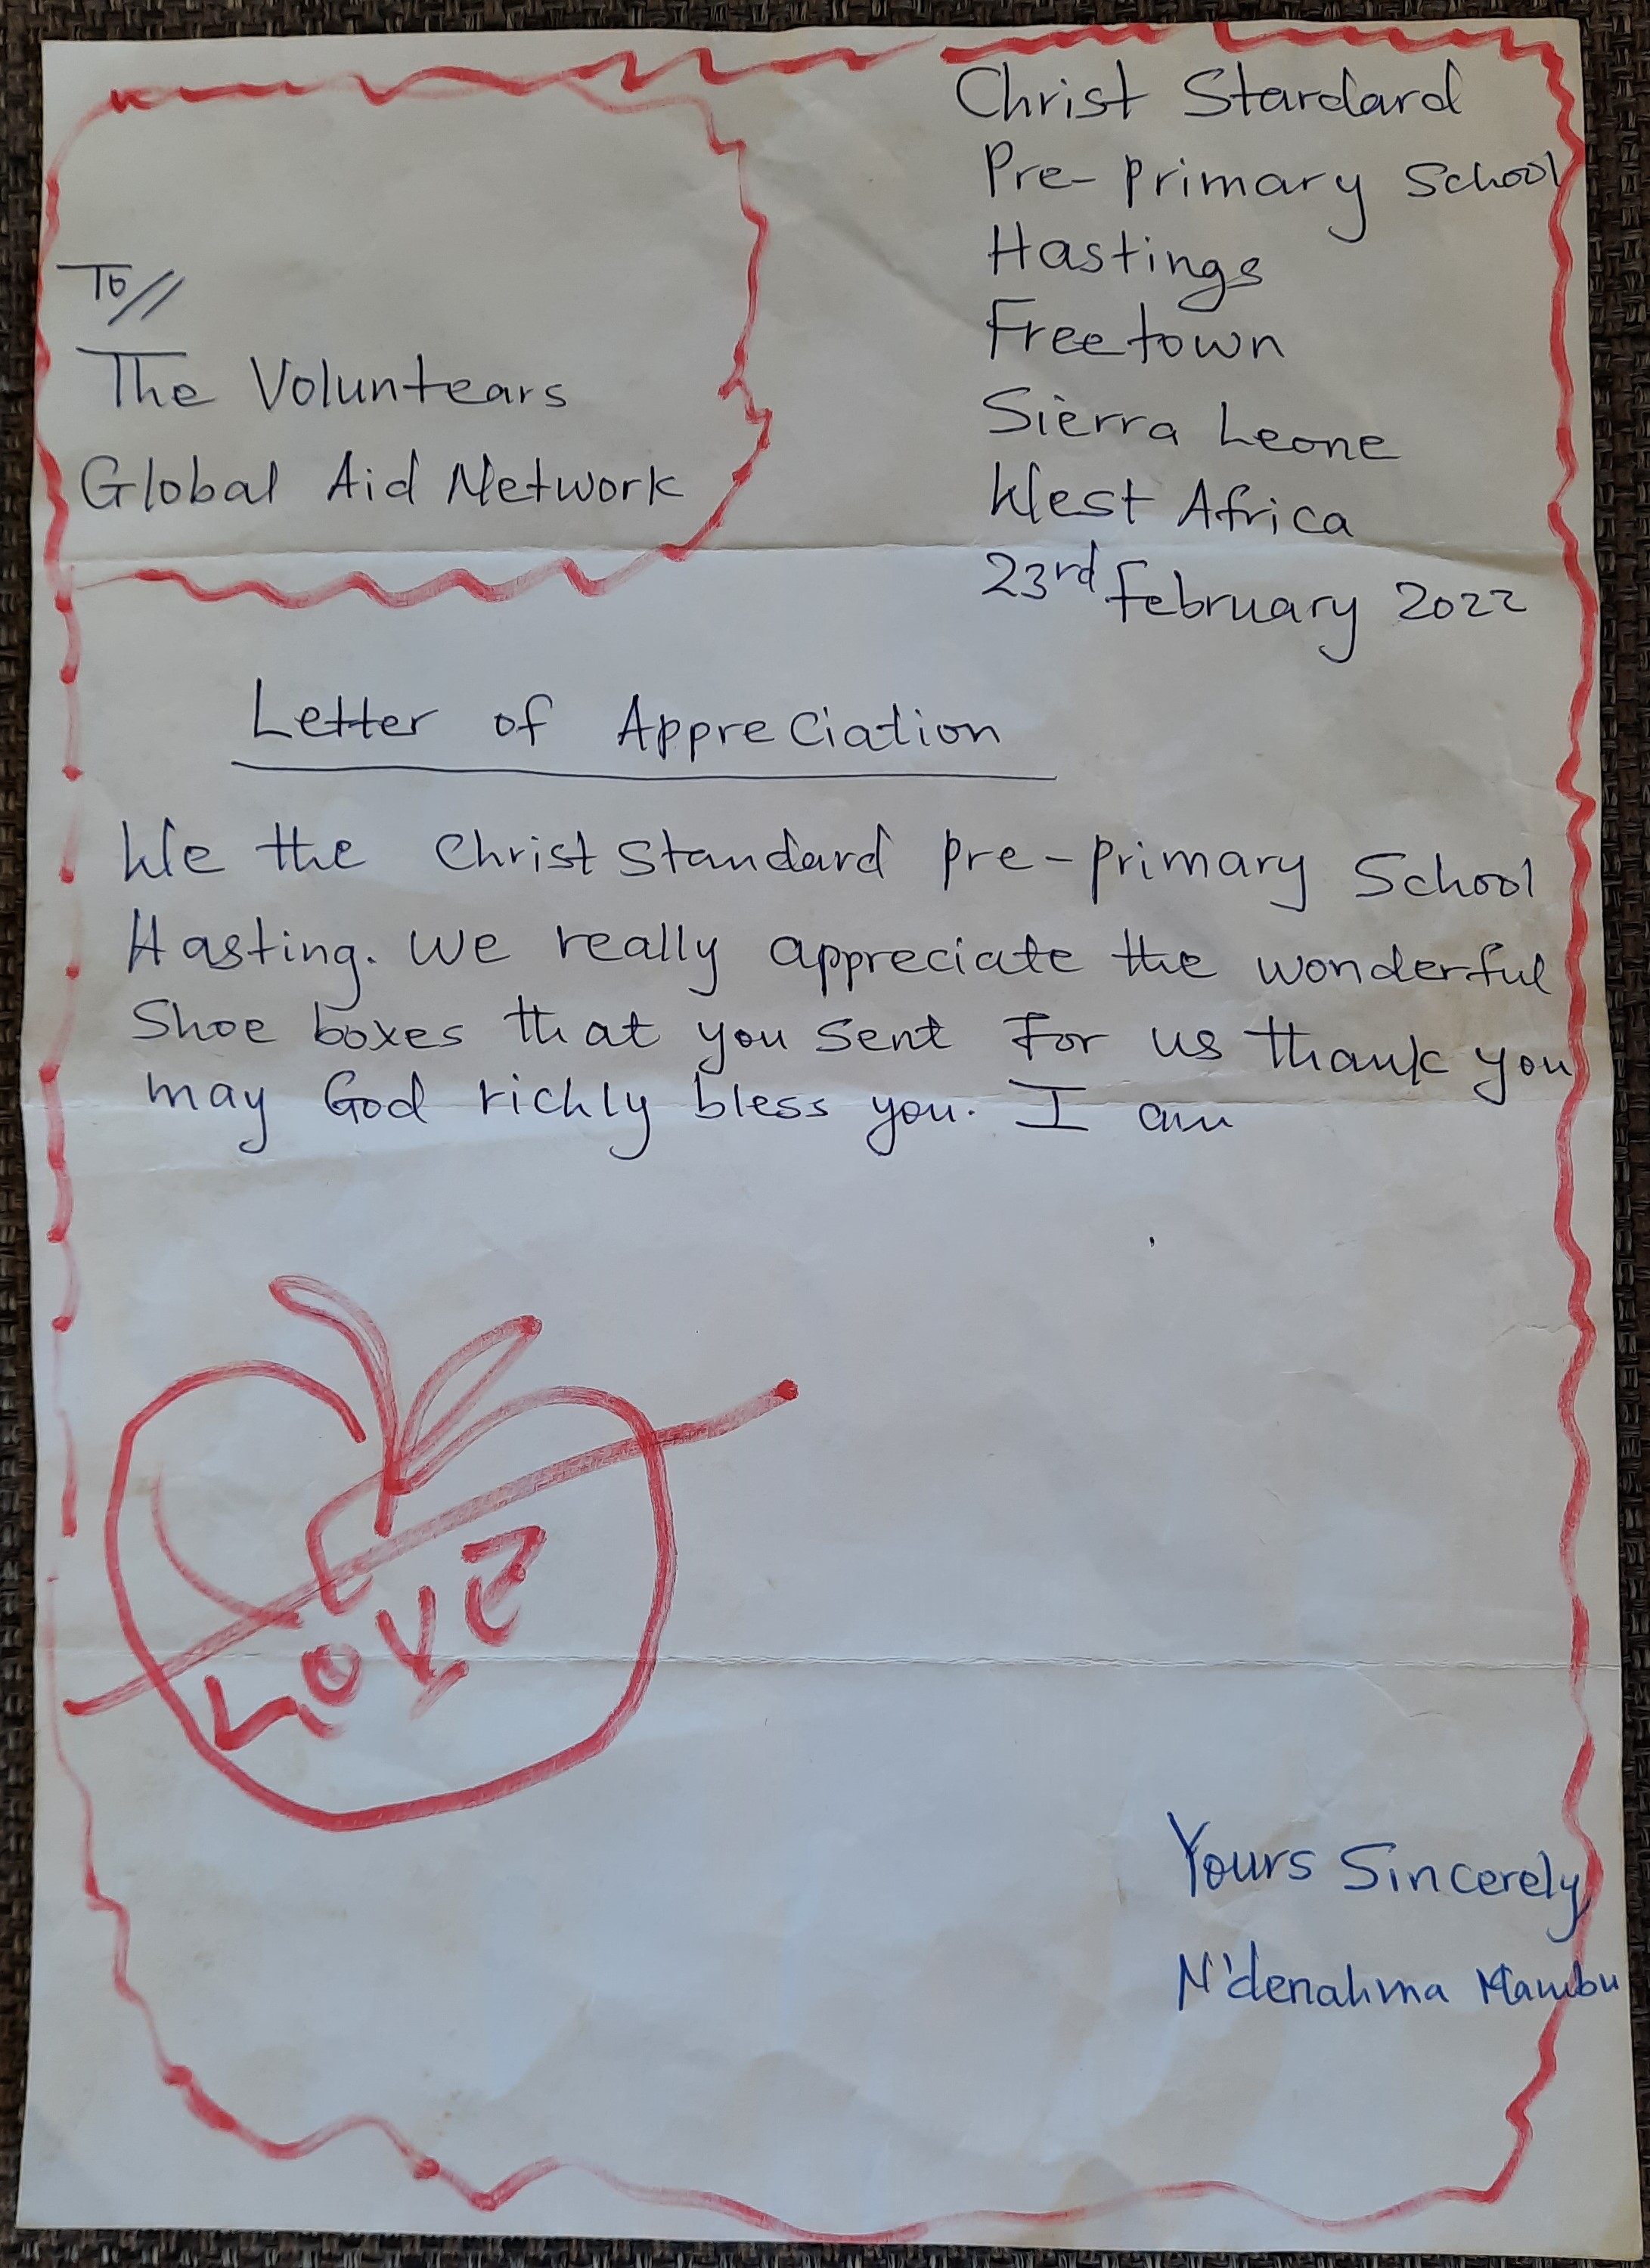 Christ Stardard
Pre-primary School
Hastings
Freetown
Sierra Leone
West Africa
23rd February 2022
To//
The Voluntears
Global Aid Network
Letter of Appreciation
We the Christ Standard pre-primary School
Hasting. We really appreciate the wonderful
Shoe boxes that you sent For us thank you
may God richly bless you. I am
LOVE
Yours Sincerely
N'denahma Mambu